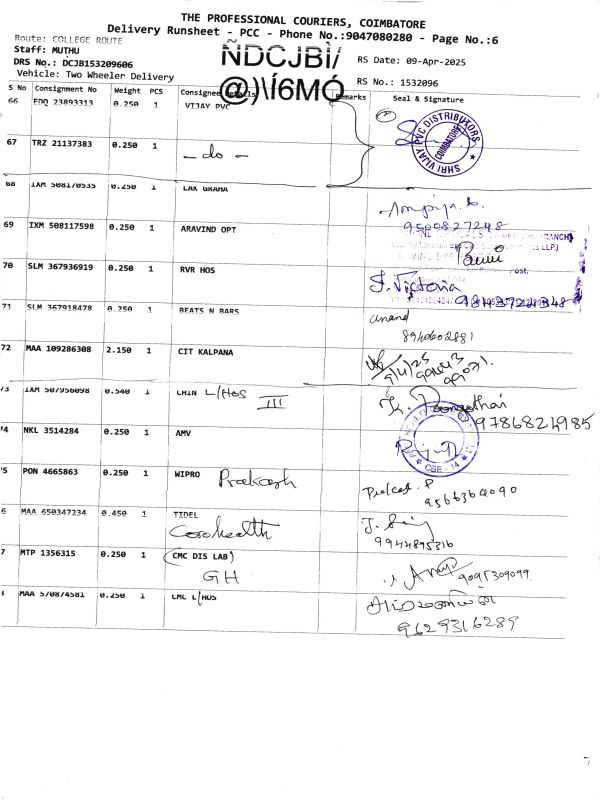 THE PROFESSIONAL COURIERS, COIMBATORE
Delivery Runsheet - PCC - Phone No.:9047080280 - Page No.:6
Route: COLLEGE ROUTE
Staff: MUTHU
DRS No.: DCJB153209606
Vehicle: Two Wheeler Delivery
ÑDCJBÌ/
@)\Í6MÓ
RS Date: 09-Apr-2025
RS No.: 1532096
S No Consignment No Weight PCS Consignee Details Remarks Seal & Signature
66 EDQ 23893313 0.250 1 VIJAY PVC
SHRI VIJAY PVC DISTRIBUTORS
COIMBATORE
67 TRZ 21137383 0.250 1 - do -
68 IXM 508170535 0.250 1 LAK GRAHA
9500827248
69 IXM 508117598 0.250 1 ARAVIND OPT
70 SLM 367936919 0.250 1 RVR HOS J. Victoria
71 SLM 367918478 0.250 1 BEATS N BARS Anand
8940602881
72 MAA 109286308 2.150 1 CIT KALPANA
9/4/25
73 IXM 507956098 0.540 1 CHIN L/HOS III
9786824985
74 NKL 3514284 0.250 1 AMV
CBE - 14
75 PON 4665863 0.250 1 WIPRO Prakash
9566364090
6 MAA 650347234 0.450 1 TIDEL
Corohealth
9944895316
7 MTP 1356315 0.250 1 (CMC DIS LAB)
GH
9095309099
MAA 570874581 0.250 1 CMC L/HOS
9629316289